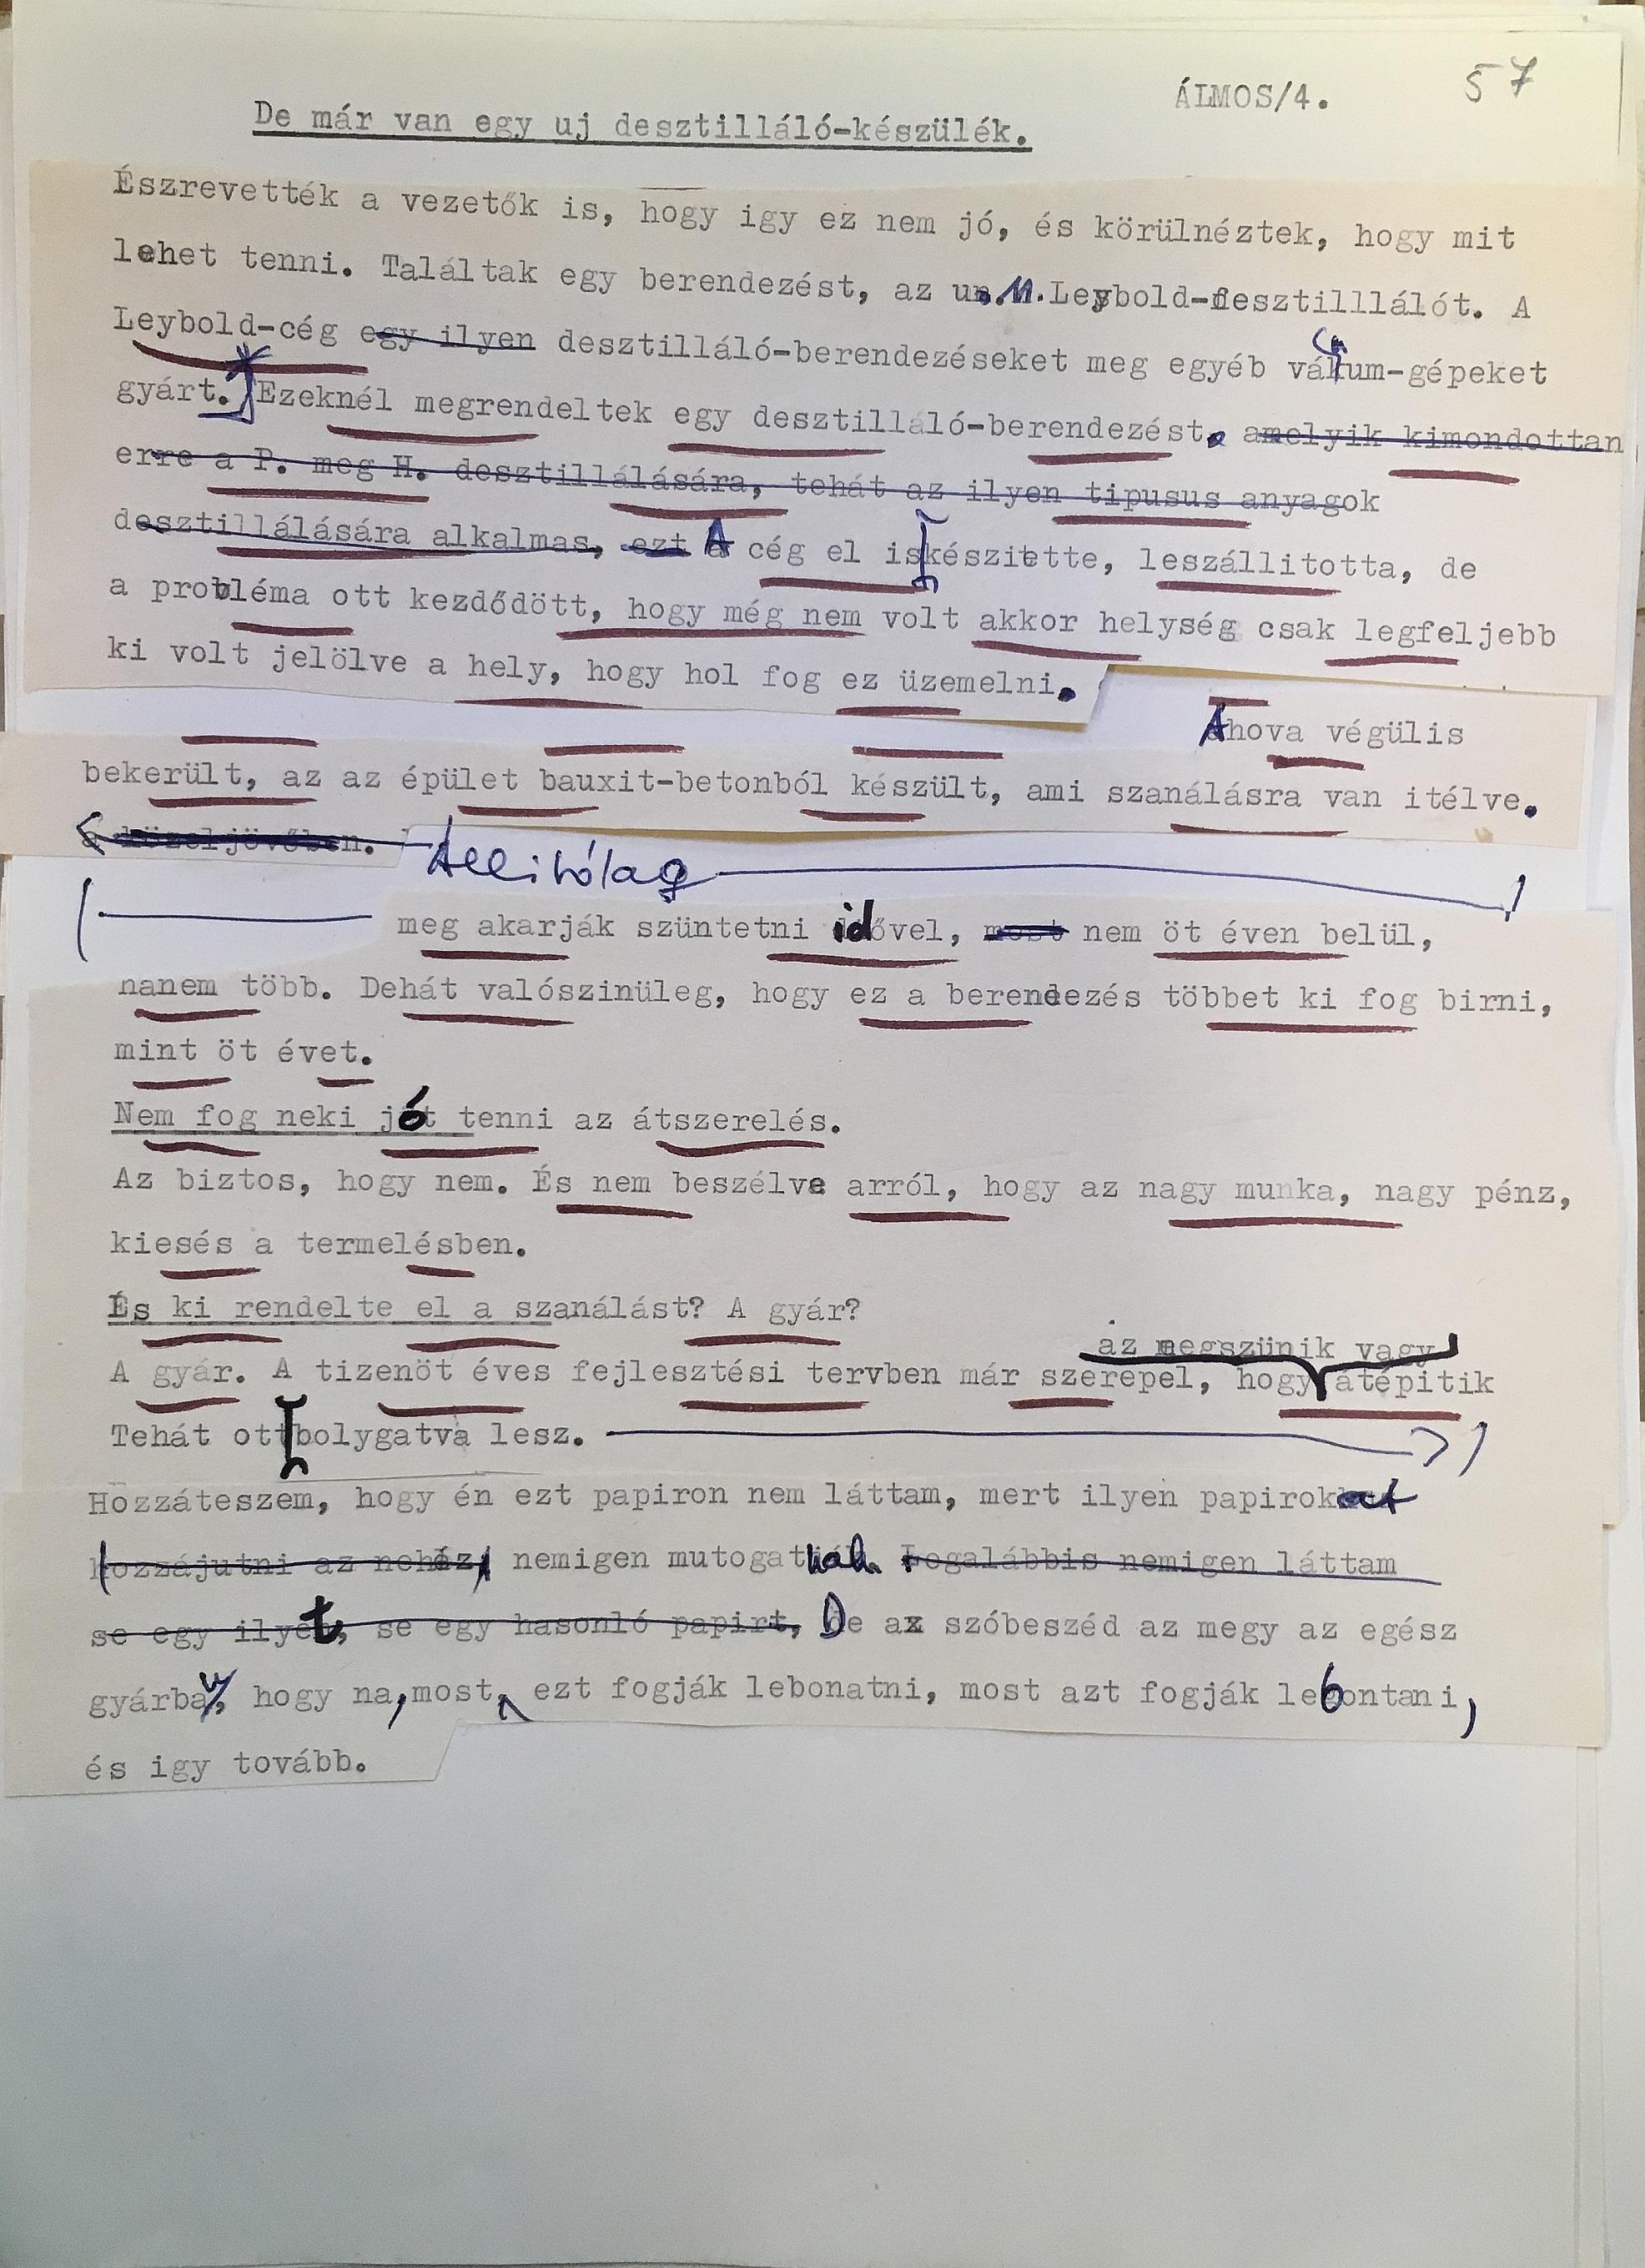 ÁLMOS/4. 57
De már van egy uj desztilláló-készülék.
Észrevették a vezetők is, hogy igy ez nem jó, és körülnéztek, hogy mit
lehet tenni. Találtak egy berendezést, az u.n. Leybold-desztilllálót. A
Leybold-cég egy ilyen desztilláló-berendezéseket meg egyéb vákuum-gépeket
gyárt. Ezeknél megrendeltek egy desztilláló-berendezést. amelyik kimondottan
erre a P. meg H. desztillálására, tehát az ilyen tipusus anyagok
desztillálására alkalmas, ezt A cég el is készitette, leszállitotta, de
a probléma ott kezdődött, hogy még nem volt akkor helység csak legfeljebb
ki volt jelölve a hely, hogy hol fog ez üzemelni.
Ahova végülis
bekerült, az az épület bauxit-betonból készült, ami szanálásra van itélve.
a közeljövőben.
Állitólag
meg akarják szüntetni idővel, most nem öt éven belül,
hanem több. Dehát valószinüleg, hogy ez a berendezés többet ki fog birni,
mint öt évet.
Nem fog neki jót tenni az átszerelés.
Az biztos, hogy nem. És nem beszélve arról, hogy az nagy munka, nagy pénz,
kiesés a termelésben.
És ki rendelte el a szanálást? A gyár?
az megszünik vagy
A gyár. A tizenöt éves fejlesztési tervben már szerepel, hogy átépitik
Tehát ott bolygatva lesz.
Hozzáteszem, hogy én ezt papiron nem láttam, mert ilyen papirokat
hozzájutni az nehéz, nemigen mutogatnak. Legalábbis nemigen láttam
se egy ilyet, se egy hasonló papirt, De az szóbeszéd az megy az egész
gyárban, hogy na, most, ezt fogják lebonatni, most azt fogják lebontani,
és igy tovább.